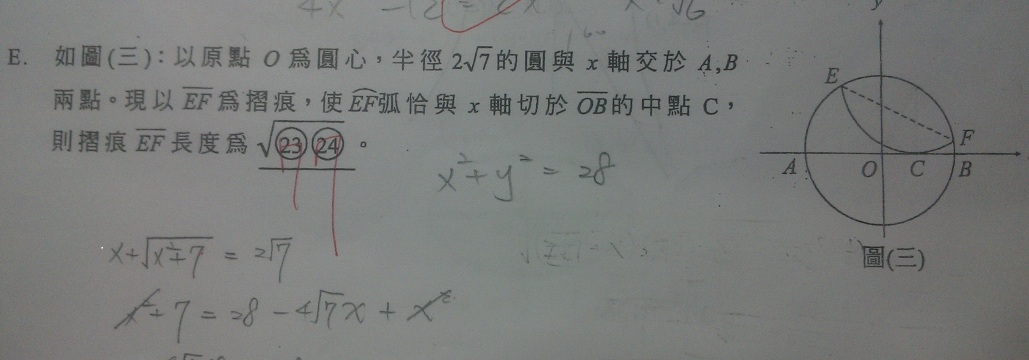 E. 如圖(三)：以原點 O 爲圓心，半徑 2√7的圓與 x 軸交於 A,B
兩點。現以 EF 爲摺痕，使EF弧恰與 x 軸切於 OB的中點 C，
則摺痕 EF 長度爲 √㉓㉔ 。
x²+y²=28
x+√x²+7 = 2√7
x²+7=28-4√7x+x²
y
E
F
A
O
C
B
圖(三)